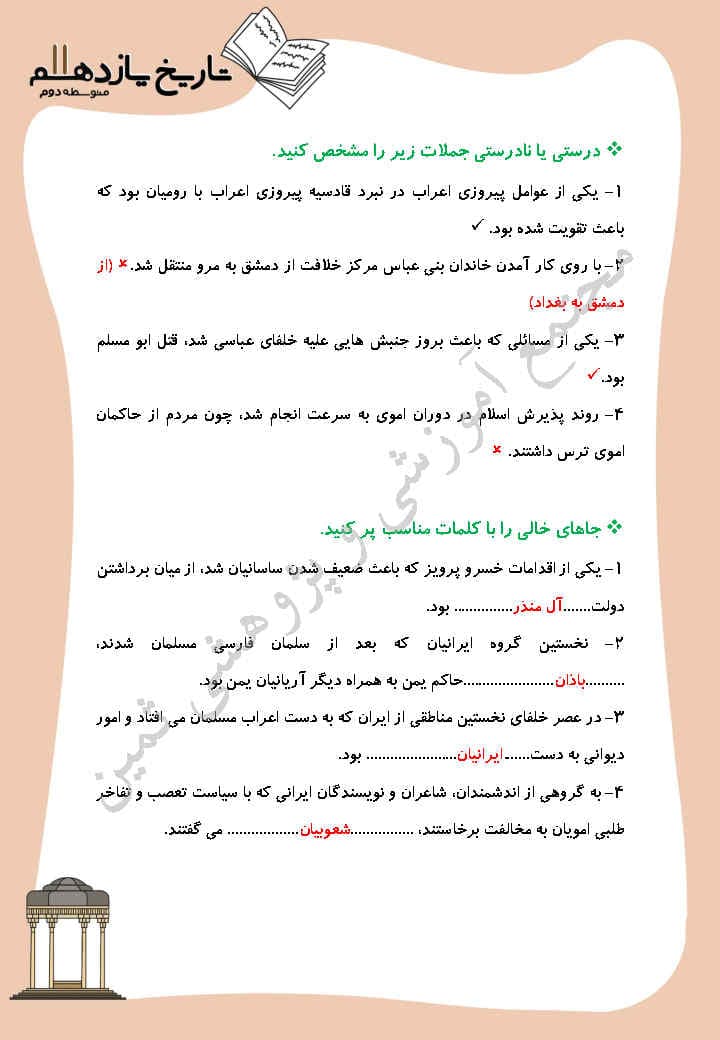 تاریخ یازدهم ۱۱
متوسطه دوم
❖ درستی یا نادرستی جملات زیر را مشخص کنید.
۱- یکی از عوامل پیروزی اعراب در نبرد قادسیه پیروزی اعراب با رومیان بود که
باعث تقویت شده بود. ✓
۲- با روی کار آمدن خاندان بنی عباس مرکز خلافت از دمشق به مرو منتقل شد. × (از
دمشق به بغداد)
۳- یکی از مسائلی که باعث بروز جنبش هایی علیه خلفای عباسی شد، قتل ابو مسلم
بود. ✓
۴- روند پذیرش اسلام در دوران اموی به سرعت انجام شد، چون مردم از حاکمان
اموی ترس داشتند. ×
❖ جاهای خالی را با کلمات مناسب پر کنید.
۱- یکی از اقدامات خسرو پرویز که باعث ضعیف شدن ساسانیان شد، از میان برداشتن
دولت.......آل منذر............... بود.
۲- نخستین گروه ایرانیان که بعد از سلمان فارسی مسلمان شدند،
..........باذان.......................حاکم یمن به همراه دیگر آریانیان یمن بود.
۳- در عصر خلفای نخستین مناطقی از ایران که به دست اعراب مسلمان می افتاد و امور
دیوانی به دست.......ایرانیان....................... بود.
۴- به گروهی از اندشمندان، شاعران و نویسندگان ایرانی که با سیاست تعصب و تفاخر
طلبی امویان به مخالفت برخاستند، ................شعوبیان.................. می گفتند.
مجتمع آموزشی و پژوهشی ثمین